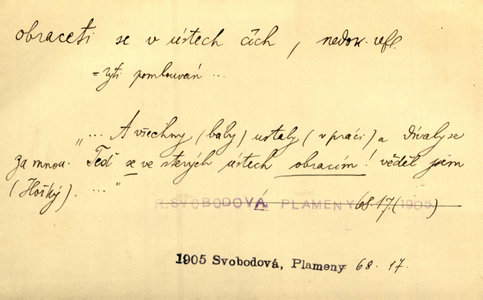 obraceti se v ústech čích, nedok. refl.
= býti pomlouván ...
"... A všechny (baby) ustaly (v práci) a dívaly se
za mnou. Teď se ve starých ústech obracím! věděl jsem
(Hošký). ..."
R. SVOBODOVÁ PLAMENY 68.17. (1905)
1905 Svobodová, Plameny 68. 17.